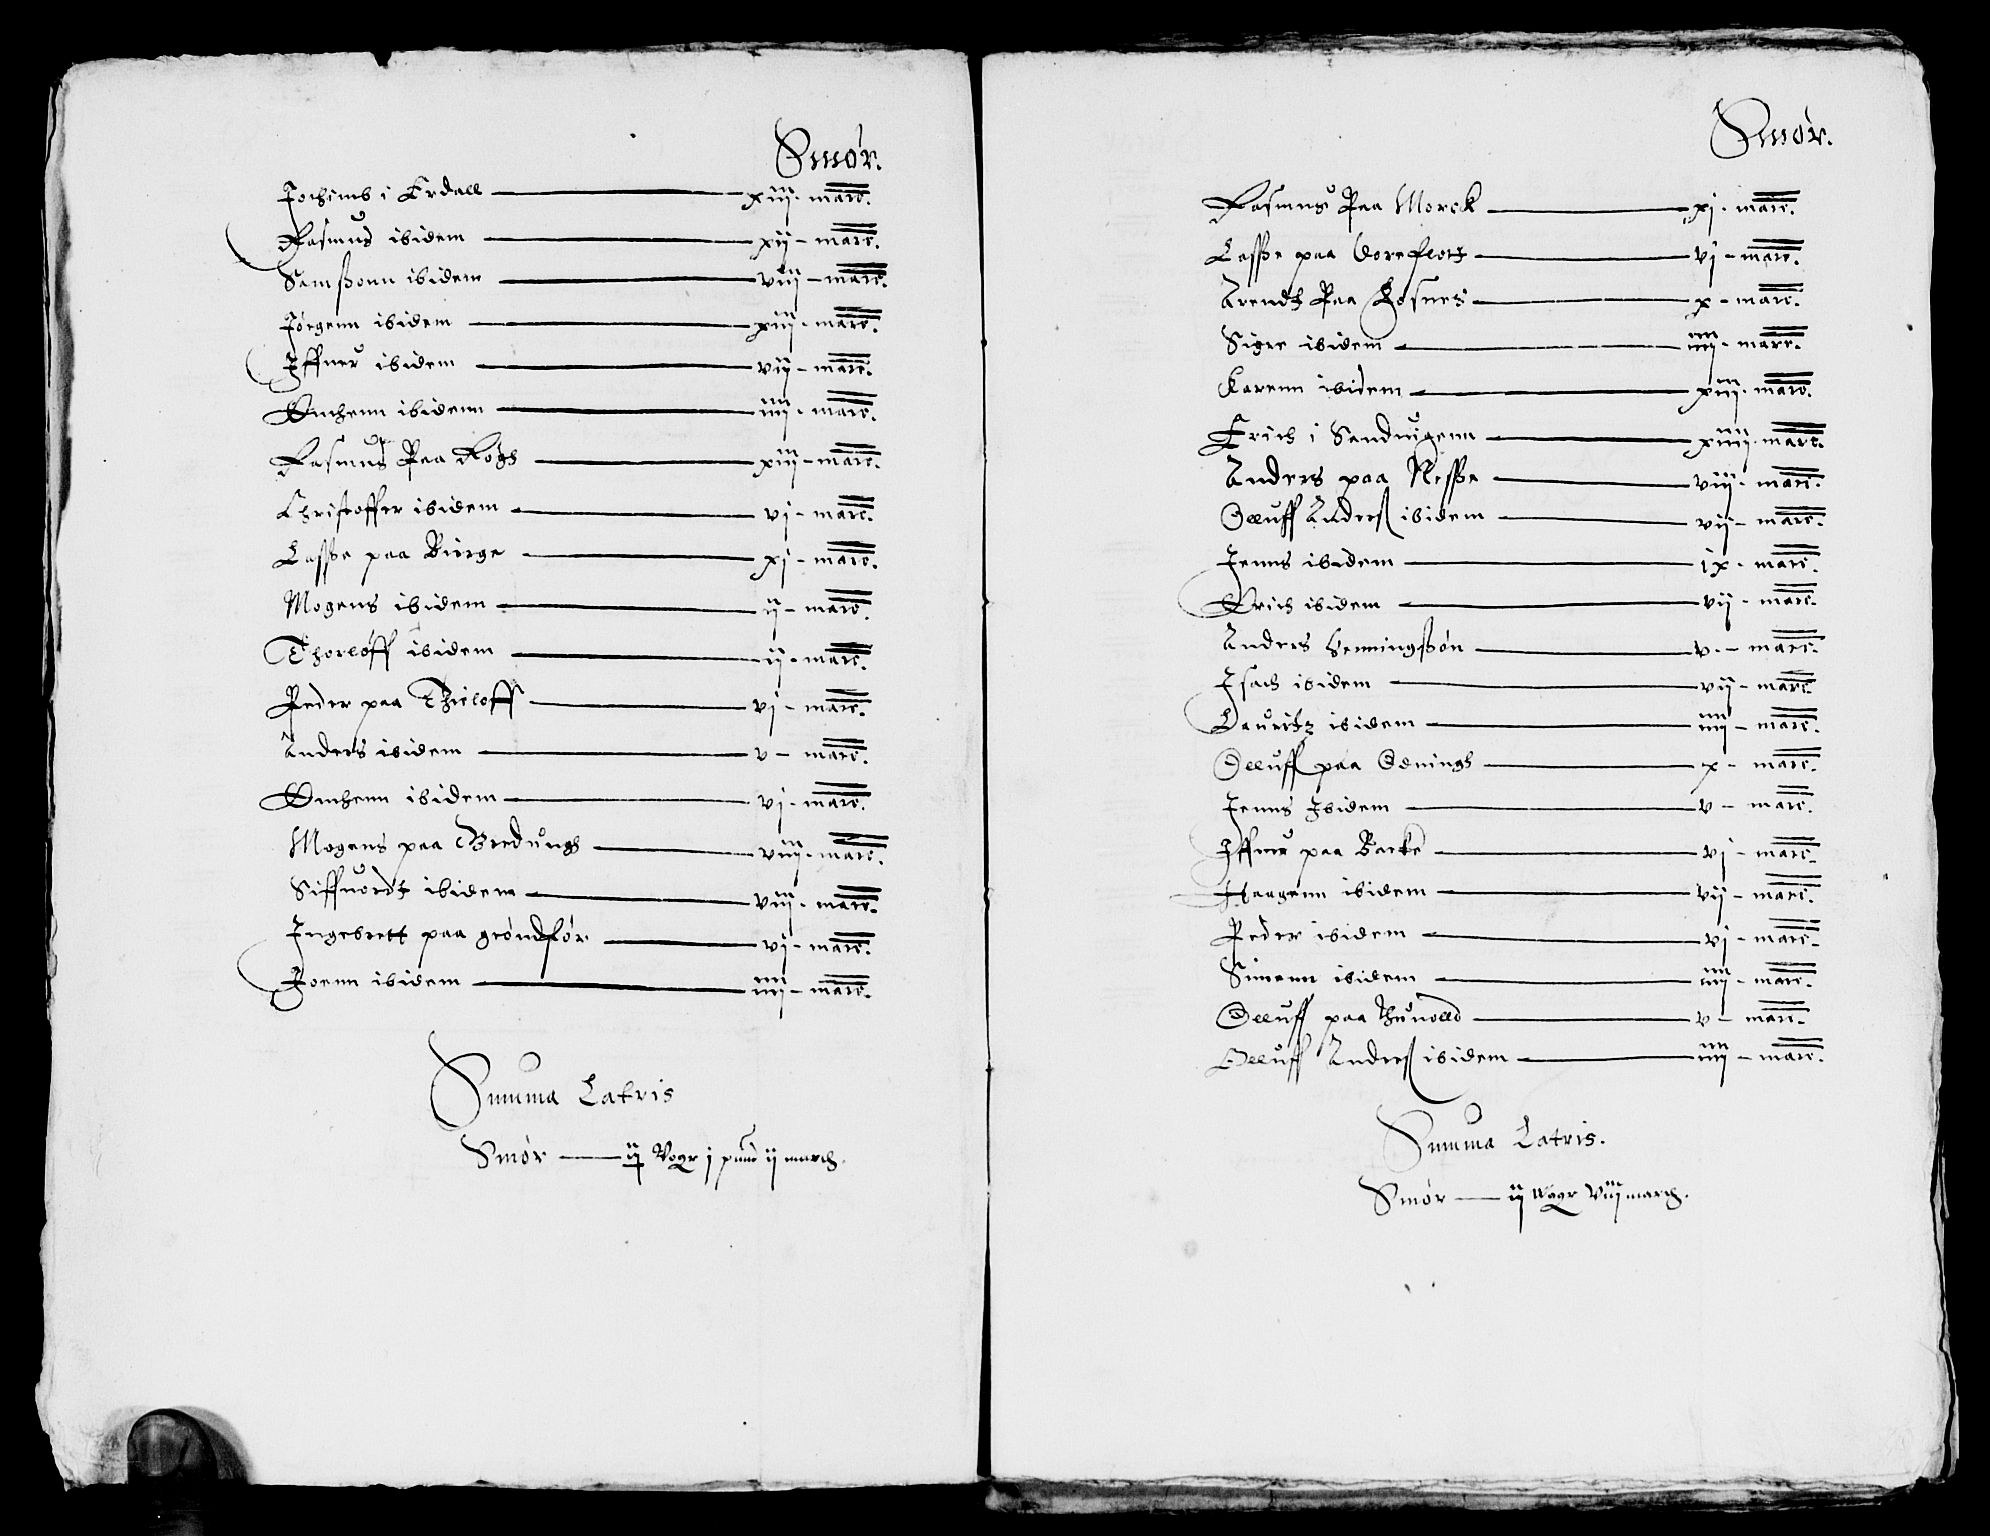 Smør.
Jochimb i Erdall — xiij · marc.
Rasmus ibidem — xij – marc.
Samßonn ibidem — viij – marc.
Jørgenn ibidem — xiij · marc.
Iffuer ibidem — vij – marc.
Anchenn ibidenn — iiij · marc.
Rasmus Paa Røgh — xiij – marc.
Christoffer ibidem — vj – marc.
Laßße paa Biørge — xj – marc.
Mogens ibidem — ij – marc.
Thorløff ibidem — ij · marc.
Peder paa Thieloff — vj – marc.
Anders ibidem — v – marc.
Anchenn ibidem — vj · marc.
Mogens paa Bredungh — viij · marc.
Siffuordt ibidem — viij · marc.
Ingebrett paa grøndßør — vj – marc.
Joenn ibidem — iiij – marc.
Summa Latris
Smør — ij Vogr j pund ij march.
Smør.
Rasmus Paa Morck — xj · marc.
Laßße paa Voreflott — vj – marc.
Arendt Paa Hosnes — x – marc.
Sigre ibidem — iiij · marc.
Karenn ibidem — xiij · marc.
Erich i Sanduigenn — xiiij · marc.
Anders paa Neßße — viij · marc.
Olluff Anderß ibidem — vij – marc.
Jenns ibidem — ix · marc.
Erich ibidem — vij · marc.
Anders Henningßøn — v · – marc.
Isach ibidem — vij – marc.
Lauritz ibidem — iiij – marc.
Olluff paa Ødningh — x – marc.
Jenns Ibidem — v – marc.
Iffuer paa Backe — vj – marc.
Haagenn ibidem — vij – marc.
Peder ibidem — vj – marc.
Simenn ibidem — iiij – marc.
Olluff paa Thuuold — v – marc.
Olluff Anderß ibidem — iiij – marc.
Summa Latris.
Smør — ij Wogr viij march.